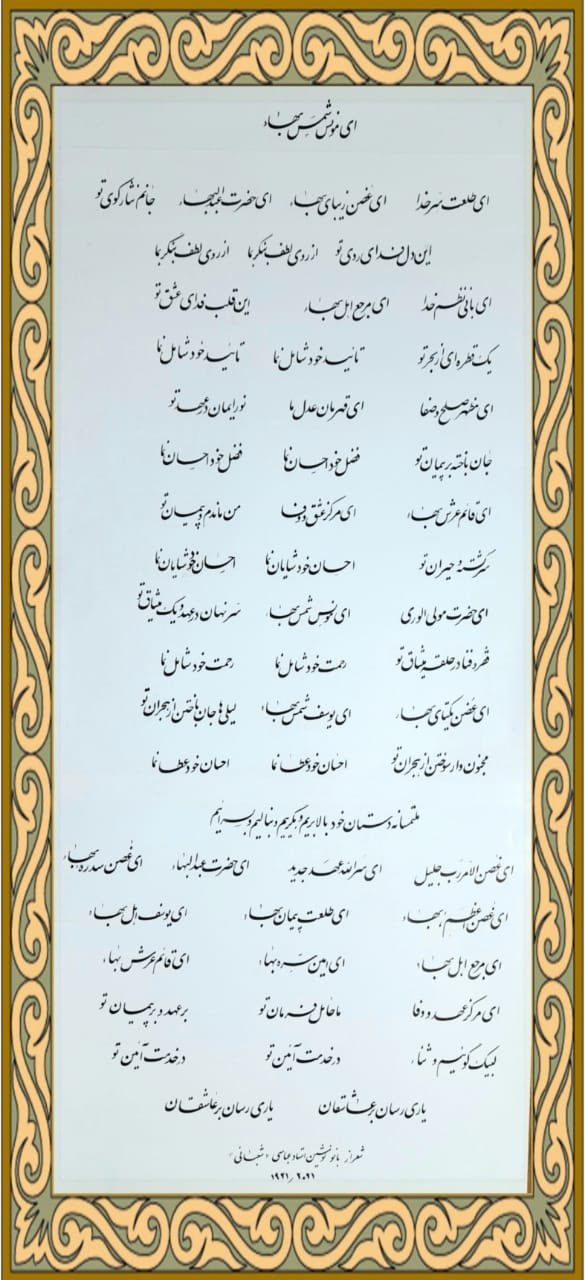 ای مونس شمس بهاء
ای طلعت سر خدا ای غصن زیبای بهاء ای حضرت عبدالبهاء جانم نثار کوی تو
این دل فدای روی تو از روی لطف بنگر بما از روی لطف بنگر بما
ای بانی نظم خدا ای مرجع اهل بهاء این قلب فدای عشق تو
یک قطره ای از بحر تو تائید خود شامل نما تائید خود شامل نما
ای مظهر صلح و صفا ای قهرمان عدل ما نور ایمان در عهد تو
جان باخته بر پیمان تو فضل خود احسان نما فضل خود احسان نما
ای قائم عرش بهاء ای مرکز عشق و وفا من ماندم و پیمان تو
سرگشته و حیران تو احسان خود شایان نما احسان خود شایان نما
ای حضرت مولی الوری ای مونس شمس بهاء سر نهان در عهد و یک میثاق تو
قهر و فنا در حلقه میثاق تو رحمت خود شامل نما رحمت خود شامل نما
ای غصن یکتای بهاء ای یوسف شمس بهاء لیلی ها جان باختن از هجران تو
مجنون وار سوختن از هجران تو احسان خود عطا نما احسان خود عطا نما
ملتمسانه دستمان خود بالا بریم و بگریم و بنالیم و بسرائیم
ای غصن الامر رب جلیل ای سرالله عهد جدید ای حضرت عبدالبهاء ای غصن سدره بهاء
ای غصن اعظم ابهاء ای طلعت پیمان بهاء ای یوسف اهل بهاء
ای مرجع اهل بهاء ای امین سر بهاء ای قائم عرش بهاء
ای مرکز عهد و وفا ما حامل فرمان تو بر عهد و بر پیمان تو
لبیک گوئیم و ثناء در خدمت آئین تو در خدمت آئین تو
یاری رسان بر عاشقان یاری رسان بر عاشقان
شعر از بانو نوشین استاد عباسی «شعبانی»
۱۹۲۱/۲۰۲۱